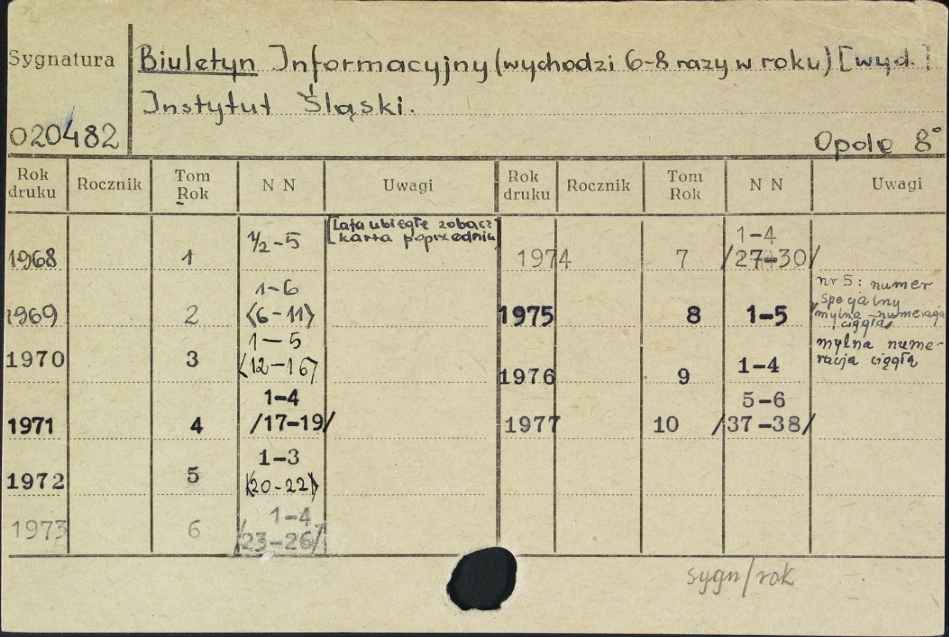 Sygnatura
Biuletyn Informacyjny (wychodzi 6-8 razy w roku) [wyd.]
Instytut Śląski.
020482
Opole 8°
Rok druku Rocznik Tom Rok N N Uwagi Rok druku Rocznik Tom Rok N N Uwagi
1968 1 1/2-5 [Lata ubiegłe zobacz
karta poprzednia]
1974 7 1-4
/27-30/
1969 2 1-6
(6-11)
1975 8 1-5 nr 5: numer
specjalny
mylna numeracja
ciągła
1970 3 1-5
(12-16)
1976 9 1-4 mylna nume-
racja ciągła
1971 4 1-4
/17-19/
1977 10 5-6
/37-38/
1972 5 1-3
(20-22)
1973 6 1-4
/23-26/
sygn/rok